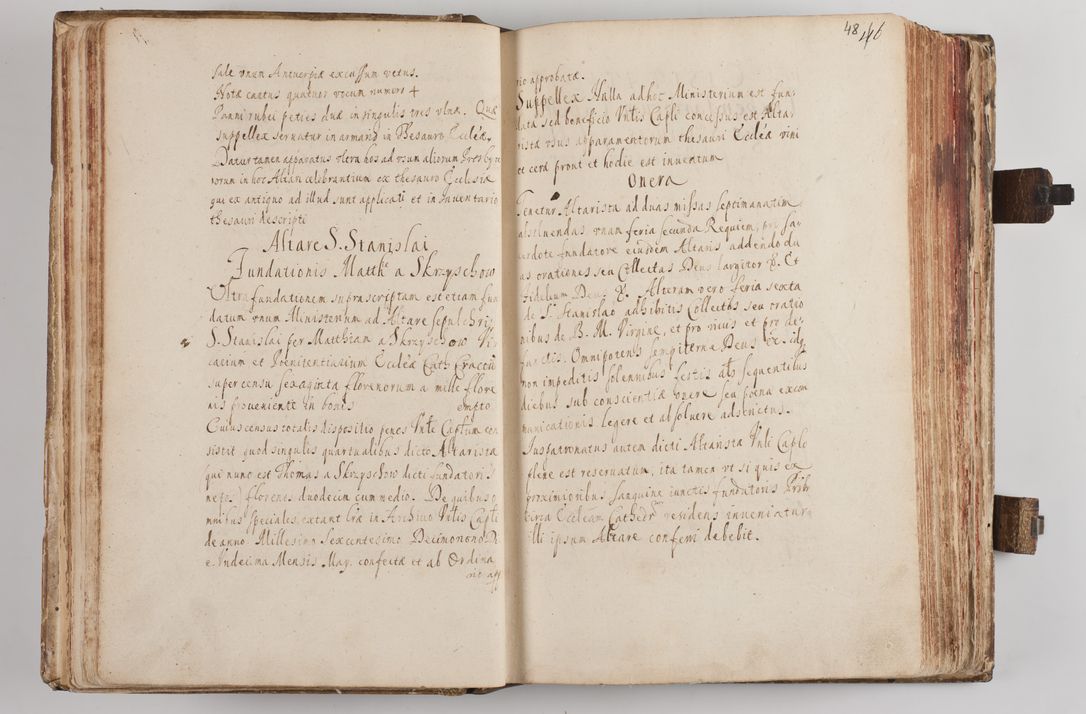 sale vnum Antuerpiæ excussum vetus.
Notæ cantus quatuor vocum numero 4
Panni rubei peties duæ in singulis tres vlnæ. Quæ
suppellex seruatur in armario in Thesauro Eccleæ
Datur tamen apparatus vltra hos ad vsum aliorum Presbyte
rorum in hoc Altari celebrantium ex thesauro Ecclesiæ
qui ex antiquo ad illud sunt applicati et in Inuentario
thesauri descripti
Altare S. Stanislai
Fundationis Matthę a Skrzyschow
Vltra fundationem suprascriptam est etiam fun
datum vnum Ministerium ad Altare sepulchri
S. Stanislai per Matthiam a Skrzyschow Vi
carium et Pœnitentiarium Eccleæ Cath. Cracou
super censu sexaginta florenorum a mille flore
nis proueniente in bonis empto
Cuius census totalis dispositio penes Vnle Captum con
sistit quod singulis quartualibus dicto Altarista
(qui nunc est Thomas a Skrzyschow dicti fundatoris
nepos) florenos duodecim cum medio. De quibus o
mnibus speciales extant lræ in Archiuo Vnlis Captli
de anno Millesimo Sexcentesimo Decimonono Di
e Vndecima Mensis May confectæ et ab Ordina
rio app
48 46
rio approbatæ.
Suppellex Nulla ad hoc Ministerium est fun
data sed beneficio Vnlis Capli concessus est Alta
rista vsus apparamentorum thesauri Eccleæ vini
et cera prout et hodie est inuentum
Onera
Tenetur Altarista ad duas missas septimanatim
absoluendas vnam feria secunda Requiem, pro sa
cerdote fundatore eiusdem Altaris addendo du
as orationes seu Collectas Deus largitor &. Et
Fidelium Deus &. Alteram vero feria sexta
de S. Stanislao adhibitis Collectis seu oratio
nibus de B. M. Virgine, et pro viuis et pro de
functis. Omnipotens sempiterne Deus &c. idq
non impeditis solennibus festis als sequentibus
diebus sub conscientiæ onere seu pœna excom
municationis. legere et absoluere adstrictus.
Iuspatronatus autem dicti Altarista Vnli Caplo
plene est reseruatum, ita tamen vt si quis ex
proximioribus sanguine iunctis fundatoris Prbr
circa Eccleam Cathedr residens inueniatur
illi ipsum Altare conferri debebit.